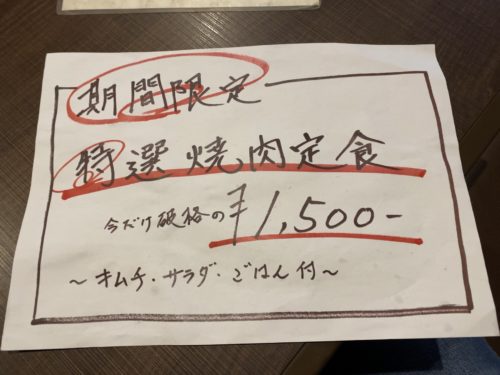 期間限定
特選焼肉定食
今だけ破格の¥1,500-
～キムチ・サラダ・ごはん付～